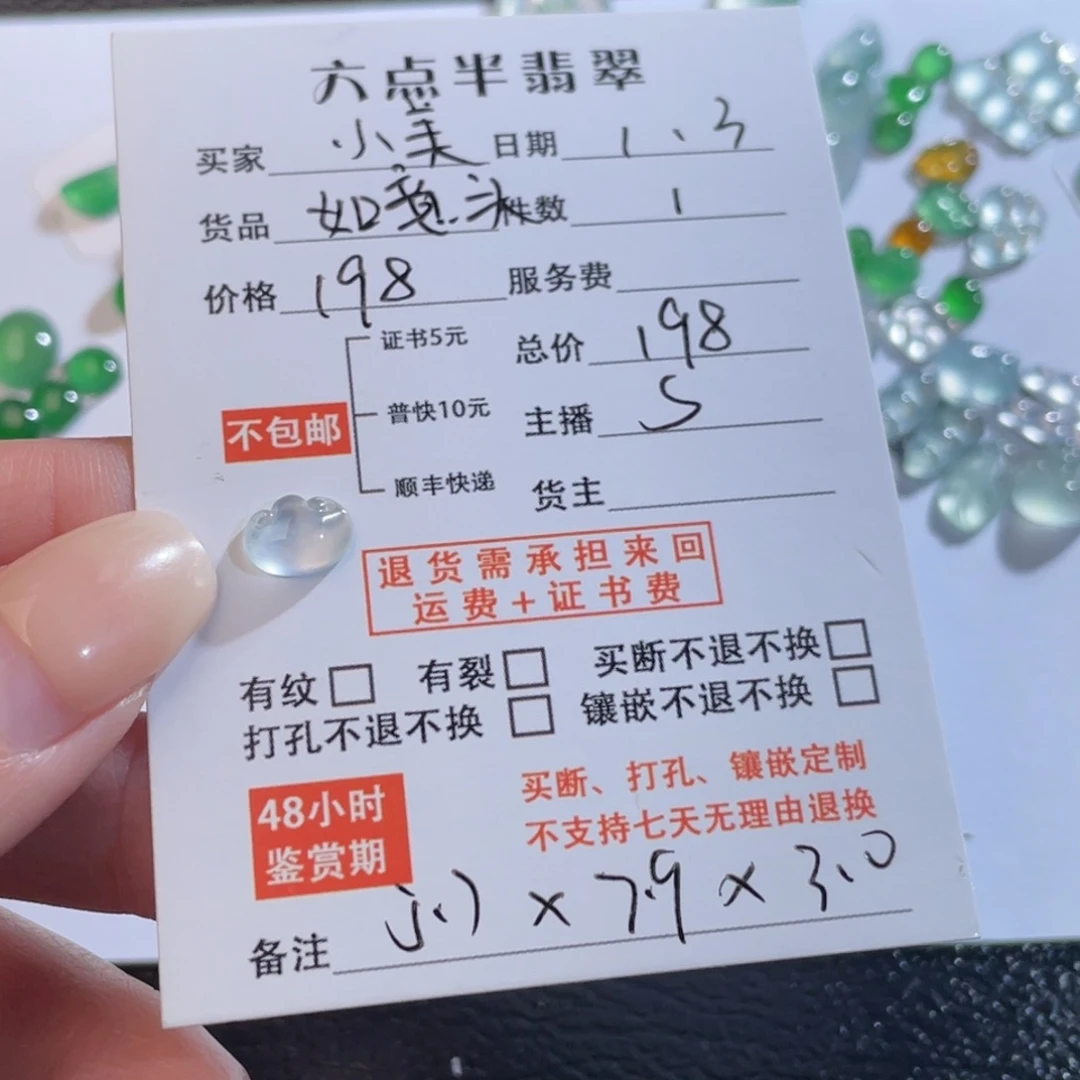 六点半翡翠
买家 小美 日期 1.3
货品 如意头 件数 1
价格 198 服务费
证书5元 总价 198
不包邮 普快10元 主播 S
顺丰快递 货主
退货需承担来回
运费+证书费
有纹□ 有裂□ 买断不退不换□
打孔不退不换□ 镶嵌不退不换□
48小时 买断、打孔、镶嵌定制
鉴赏期 不支持七天无理由退换
备注 × 7.9 × 3.0